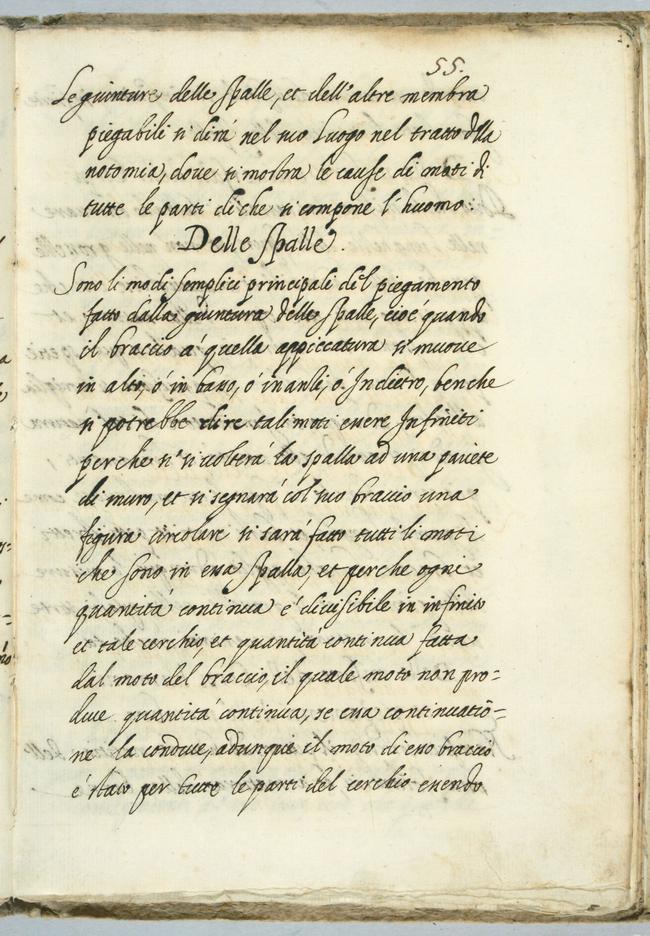 55.
Le giunture delle spalle, et dell'altre membra
piegabili si dirá nel suo Luogo nel tratto della
notomia, dove si mostra le cause di moti di
tutte le parti di che si compone l'huomo.
Delle spalle.
Sono li modi semplici principali del piegamento
fatto dalla giuntura delle spalle, cioé quando
il braccio á quella appiccatura si muove
in alto, ó in basso, ó inanti, ó Indietro, benche
si potrebbe dire tali moti essere Infiniti
perche si si volterá la spalla ad una pariete
di muro, et si segnará col suo braccio una
figura circolare si sará fatto tutti li moti
che sono in essa spalla et perche ogni
quantitá continua é divisibile in infinito
et tale cerchio, et quantitá continua fatta
dal moto del braccio, il quale moto non pro=
duce quantitá continua, se essa continuatio=
ne la conduce, adunque il moto di esso braccio
é stato per tutte le parti del cerchio essendo